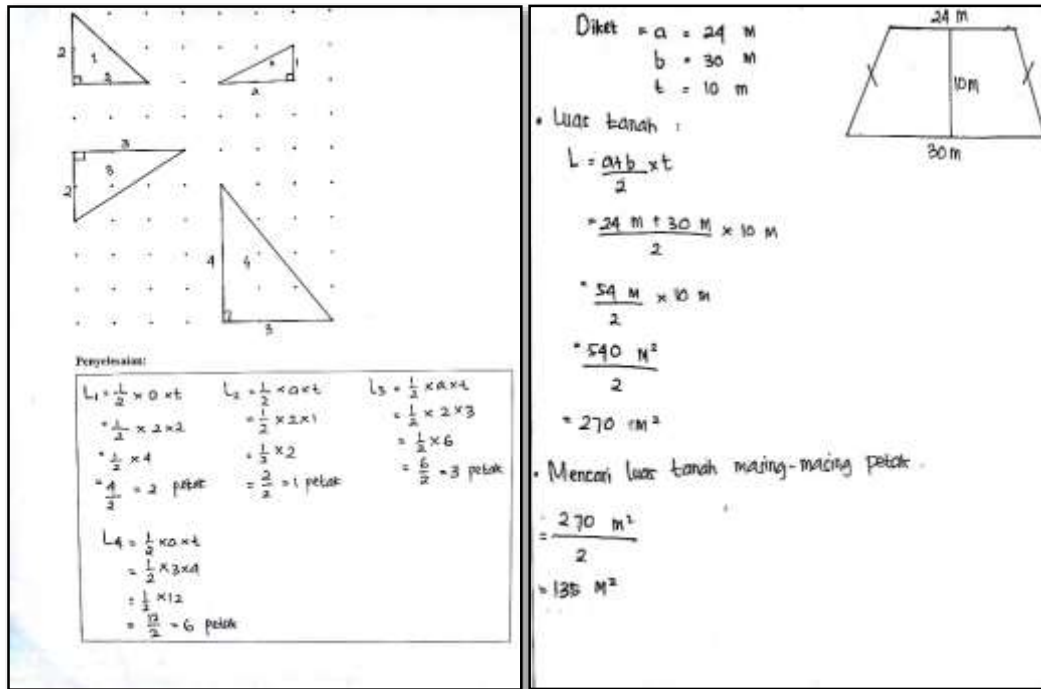 2
1
2
1
a
3
2
3
4
4
3
Penyelesaian:
L1 = 1/2 × a × t
= 1/2 × 2 × 2
= 1/2 × 4
= 4/2 = 2 petak
L2 = 1/2 × a × t
= 1/2 × 2 × 1
= 1/2 × 2
= 2/2 = 1 petak
L3 = 1/2 × a × t
= 1/2 × 2 × 3
= 1/2 × 6
= 6/2 = 3 petak
L4 = 1/2 × a × t
= 1/2 × 3 × 4
= 1/2 × 12
= 12/2 = 6 petak
Diket = a = 24 m
b = 30 m
t = 10 m
24 m
10 m
30 m
• Luas tanah :
L = a+b/2 × t
= 24 m + 30 m/2 × 10 m
= 54 m/2 × 10 m
= 540 m²/2
= 270 m²
• Mencari luas tanah masing-masing petak.
= 270 m²/2
= 135 m²